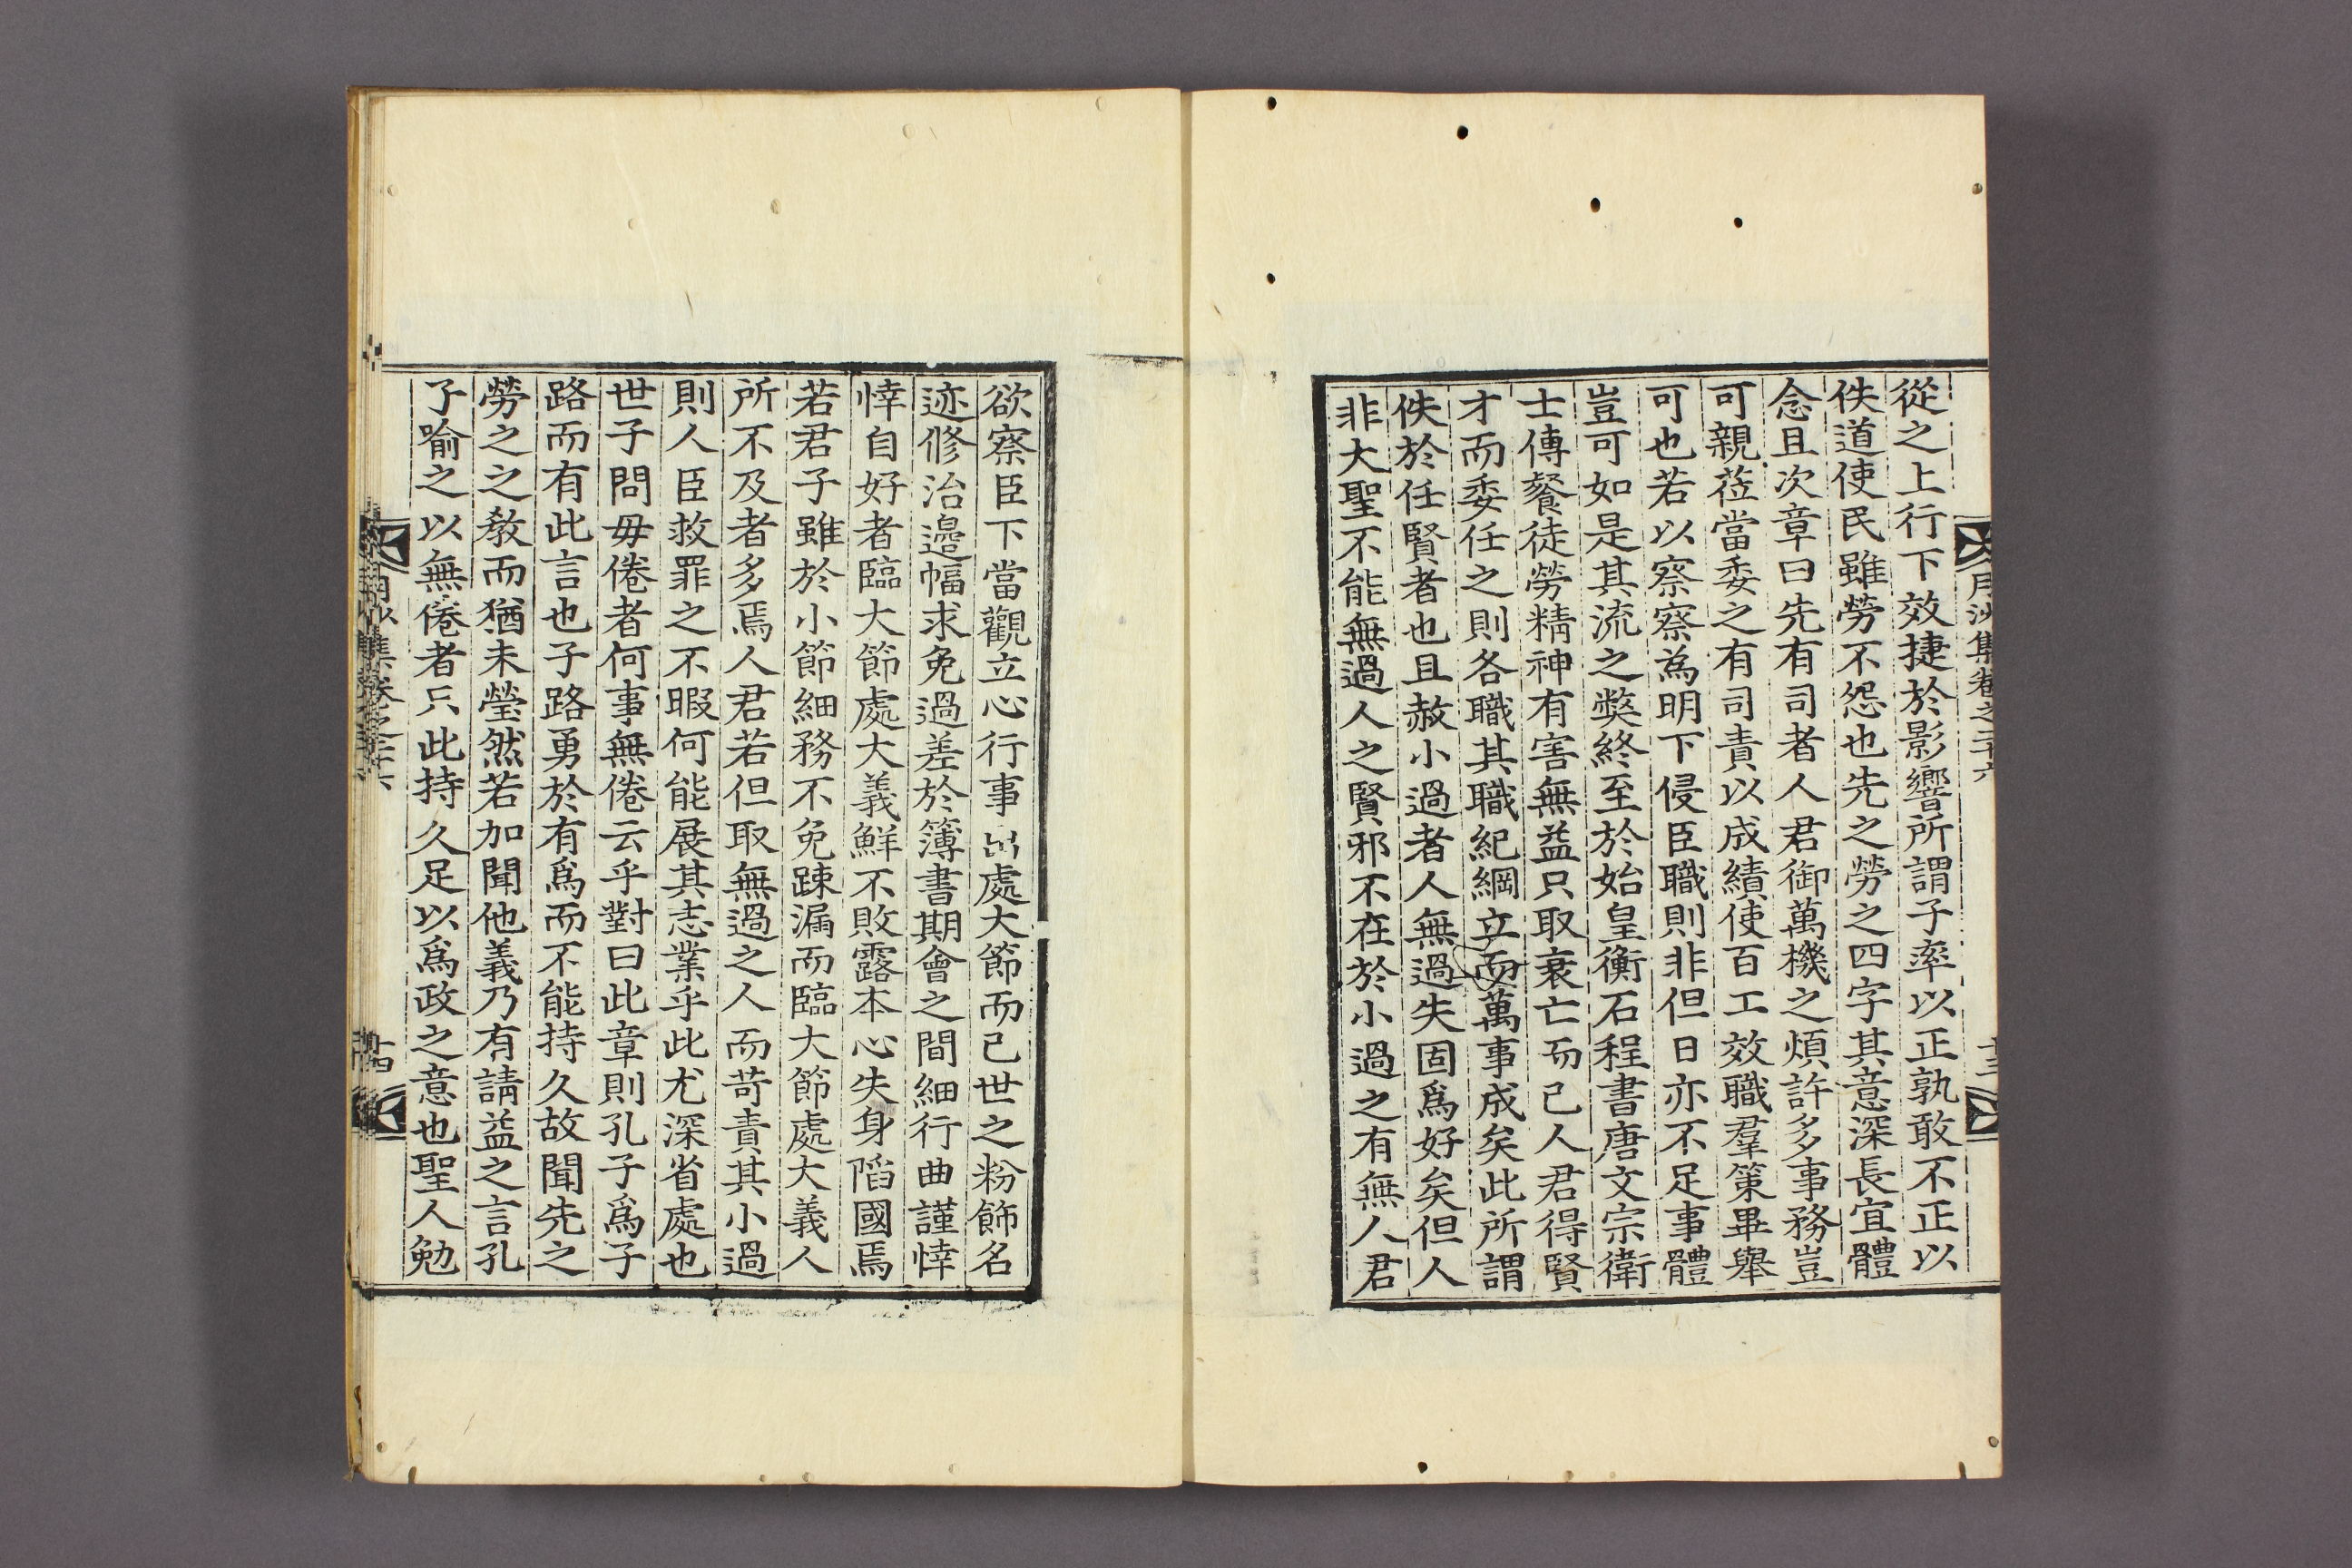 月沙集卷之二十六
十三
從之上行下效捷於影響所謂子率以正孰敢不正以
佚道使民雖勞不怨也先之勞之四字其意深長宜體
念且次章曰先有司者人君御萬機之煩許多事務豈
可親莅當委之有司責以成績使百工效職羣策畢舉
可也若以察察爲明下侵臣職則非但日亦不足事體
豈可如是其流之獘終至於始皇衡石程書唐文宗衛
士傳餐徒勞精神有害無益只取衰亡而已人君得賢
才而委任之則各職其職紀綱立而萬事成矣此所謂
佚於任賢者也且赦小過者人無過失固爲好矣但人
非大聖不能無過人之賢邪不在於小過之有無人君
欲察臣下當觀立心行事出處大節而已世之粉飾名
迹修治邊幅求免過差於簿書期會之間細行曲謹悻
悻自好者臨大節處大義鮮不敗露本心失身陷國焉
若君子雖於小節細務不免踈漏而臨大節處大義人
所不及者多焉人君若但取無過之人而苛責其小過
則人臣救罪之不暇何能展其志業乎此尤深省處也
世子問毋倦者何事無倦云乎對曰此章則孔子爲子
路而有此言也子路勇於有爲而不能持久故聞先之
勞之之教而猶未瑩然若加聞他義乃有請益之言孔
子喻之以無倦者只此持久足以爲政之意也聖人勉
月沙集卷之二十六
十四